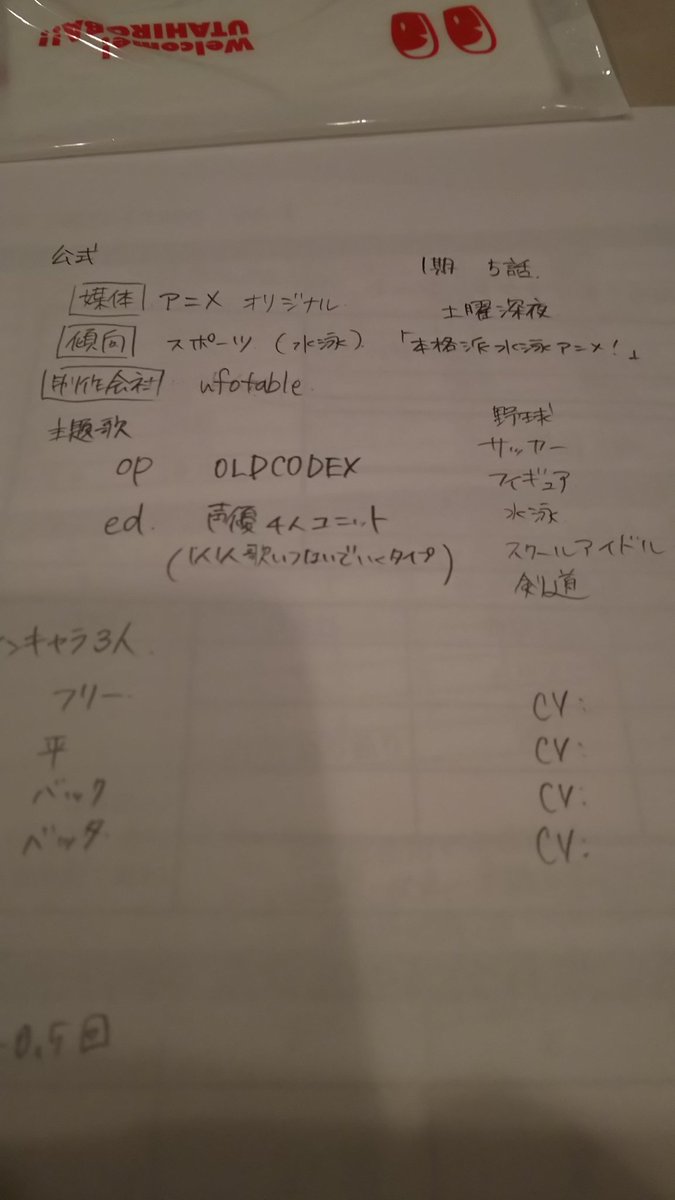 Welcome!
UTAHIROBA!!
公式
媒体 アニメ オリジナル
傾向 スポーツ (水泳)
制作会社 ufotable
主題歌
op OLDCODEX
ed. 声優4人ユニット
(1人1人歌いつないでいくタイプ)
1期 5話.
土曜深夜
「本格派水泳アニメ!」
野球
サッカー
フィギュア
水泳
スクールアイドル
剣道
ンキャラ3人
フリー CV:
平 CV:
バック CV:
バッタ CV:
0.5回